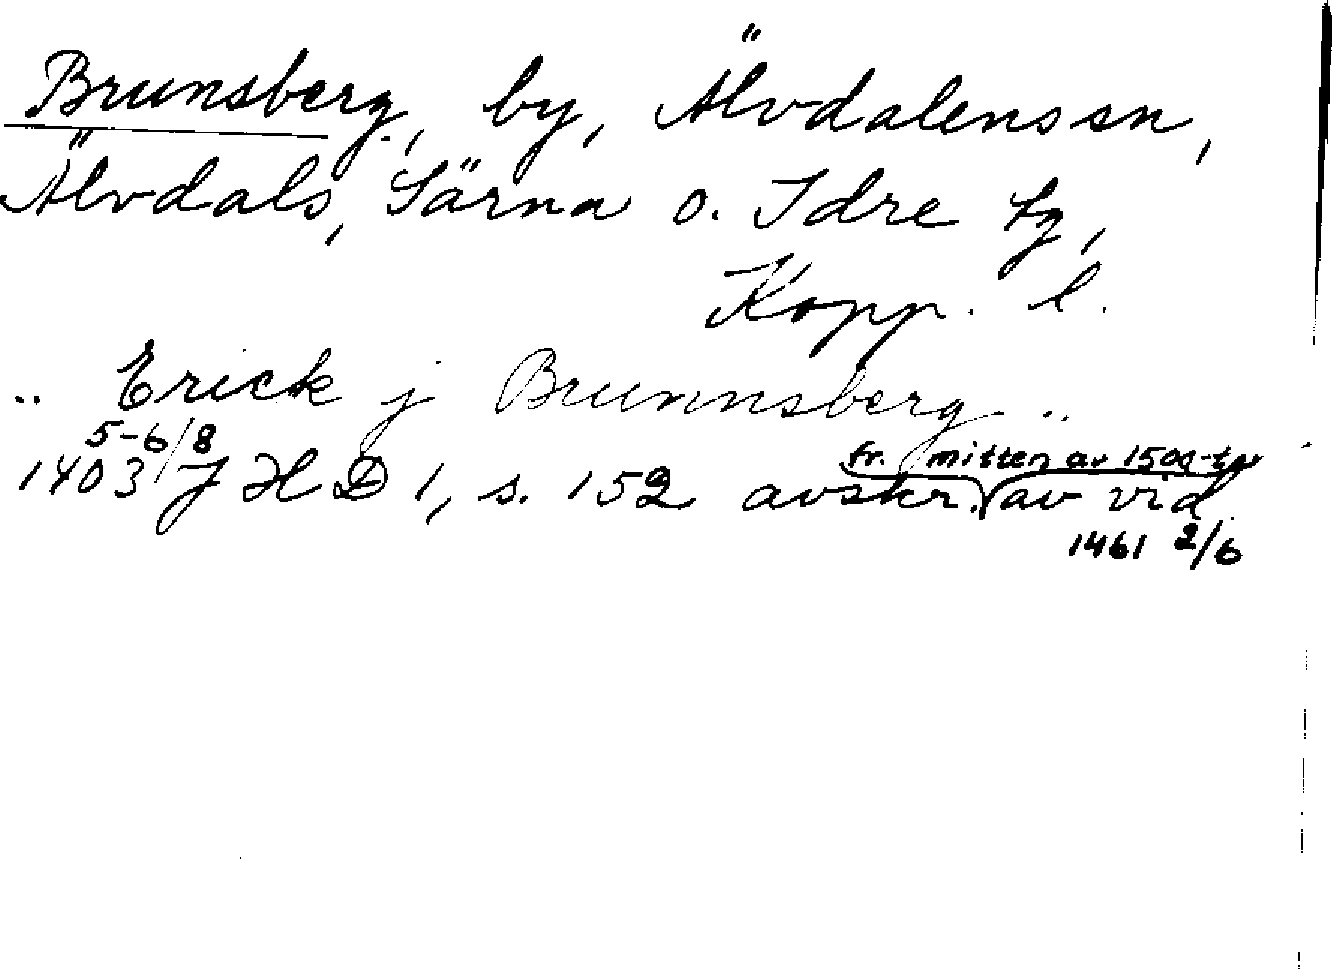 Brunsberg, by, Älvdalens sn,
Älvdals, Särna o. Idre tg,
Kopp. l.
.. Erick j Brunnsberg ..
5-6/8 fr. mitten av 1500-t
1403 J H D 1, s. 152 avskr. av vid.
1461 2/6